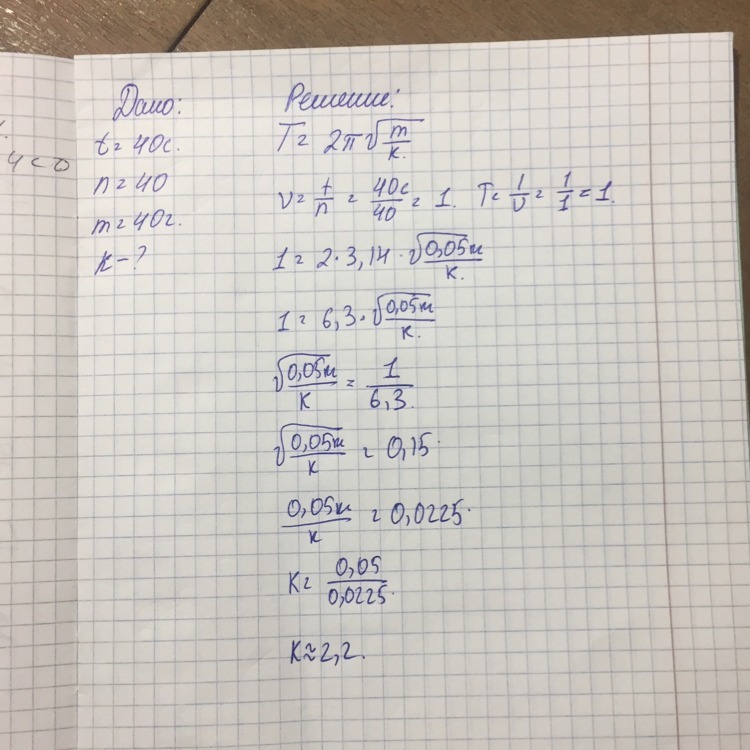 Дано:
t = 40с.
n = 40
m = 40г.
k - ?
Решение:
T = 2π√(m/k.)
ν = t/n = 40с/40 = 1. T = 1/ν = 1/1 = 1.
1 = 2 · 3,14 · √(0,05м/k.)
1 = 6,3 · √(0,05м/k.)
√(0,05м/k) = 1/6,3.
√(0,05м/k) = 0,15.
0,05м/k = 0,0225.
k = 0,05/0,0225.
k ≈ 2,2.